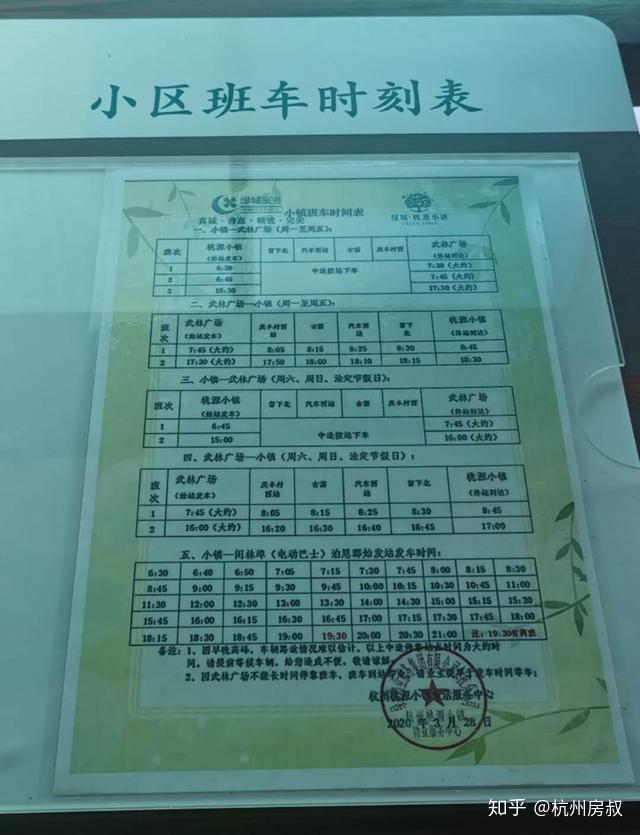 小区班车时刻表
绿城服务
真诚·善意·精致·完美
小镇班车时间表
绿城·桃源小镇
一、小镇—武林广场（周一至周五）：
班次 桃源小镇（始站发车） 留下北 汽车西站 古荡 庆丰村西 武林广场（终站到达）
1 6:30 中途接站下车 7:30（大约）
2 6:45 7:45（大约）
3 16:30 17:30（大约）
二、武林广场—小镇（周一至周五）：
班次 武林广场（始站发车） 庆丰村西站 古荡 汽车西站 留下北 桃源小镇（终站到达）
1 7:45（大约） 8:05 8:15 8:25 8:30 8:45
2 17:30（大约） 17:50 18:00 18:10 18:15 18:30
三、小镇—武林广场（周六、周日、法定节假日）：
班次 桃源小镇（始站发车） 留下北 汽车西站 古荡 庆丰村西 武林广场（终站到达）
1 6:45 中途接站下车 7:45（大约）
2 15:00 16:00（大约）
四、武林广场—小镇（周六、周日、法定节假日）：
班次 武林广场（始站发车） 庆丰村西站 古荡 汽车西站 留下北 桃源小镇（终站到达）
1 7:45（大约） 8:05 8:15 8:25 8:30 8:45
2 16:00（大约） 16:20 16:30 16:40 16:45 17:00
五、小镇—闲林埠（电动巴士）泊思郡始发站发车时间：
6:30 6:40 6:50 7:05 7:15 7:30 7:45 8:00 8:15 8:30
8:45 9:00 9:15 9:30 9:45 10:00 10:15 10:30 10:45 11:00
11:30 12:00 12:30 13:00 13:30 14:00 14:30 15:00 15:15 15:30
15:45 16:00 16:15 16:30 16:45 17:00 17:15 17:30 17:45 18:00
18:15 18:30 18:45 19:00 19:30 20:00 20:30 21:00 注：19:30有两班
备注：1、因早晚高峰，车辆路途情况难以估计，以上中途停靠站点时间为大约时
间，请提前等候车辆，给您造成不便，敬请谅解
2、因武林广场不能长时间停靠班车，班车到站即走，请业主提早于发车时间等车；
杭州桃源小镇生活服务中心
2020年3月28日
知乎 @杭州房叔